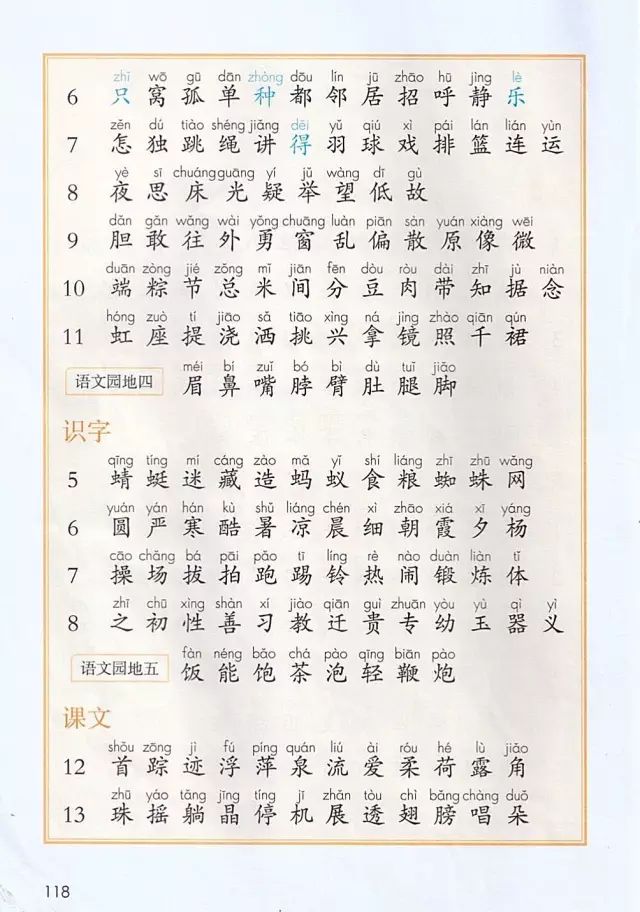 zhī wō gū dān zhǒng dōu lín jū zhāo hū jìng lè
6 只 窝 孤 单 种 都 邻 居 招 呼 静 乐
zěn dú tiào shéng jiǎng děi yǔ qiú xì pái lán lián yùn
7 怎 独 跳 绳 讲 得 羽 球 戏 排 篮 连 运
yè sī chuáng guāng yí jǔ wàng dī gù
8 夜 思 床 光 疑 举 望 低 故
dǎn gǎn wǎng wài yǒng chuāng luàn piān sàn yuán xiàng wēi
9 胆 敢 往 外 勇 窗 乱 偏 散 原 像 微
duān zòng jié zǒng mǐ jiān fēn dòu ròu dài zhī jù niàn
10 端 粽 节 总 米 间 分 豆 肉 带 知 据 念
hóng zuò tí jiāo sǎ tiāo xìng ná jìng zhào qiān qún
11 虹 座 提 浇 洒 挑 兴 拿 镜 照 千 裙
méi bí zuǐ bó bì dù tuǐ jiǎo
语文园地四 眉 鼻 嘴 脖 臂 肚 腿 脚
识字
qīng tíng mí cáng zào mǎ yǐ shí liáng zhī zhū wǎng
5 蜻 蜓 迷 藏 造 蚂 蚁 食 粮 蜘 蛛 网
yuán yán hán kù shǔ liáng chén xì zhāo xiá xī yáng
6 圆 严 寒 酷 暑 凉 晨 细 朝 霞 夕 杨
cāo chǎng bá pāi pǎo tī líng rè nào duàn liàn tǐ
7 操 场 拔 拍 跑 踢 铃 热 闹 锻 炼 体
zhī chū xìng shàn xí jiào qiān guì zhuān yòu yù qì yì
8 之 初 性 善 习 教 迁 贵 专 幼 玉 器 义
fàn néng bǎo chá pào qīng biān pào
语文园地五 饭 能 饱 茶 泡 轻 鞭 炮
课文
shǒu zōng jì fú píng quán liú ài róu hé lù jiǎo
12 首 踪 迹 浮 萍 泉 流 爱 柔 荷 露 角
zhū yáo tǎng jīng tíng jī zhǎn tòu chì bǎng chàng duǒ
13 珠 摇 躺 晶 停 机 展 透 翅 膀 唱 朵
118